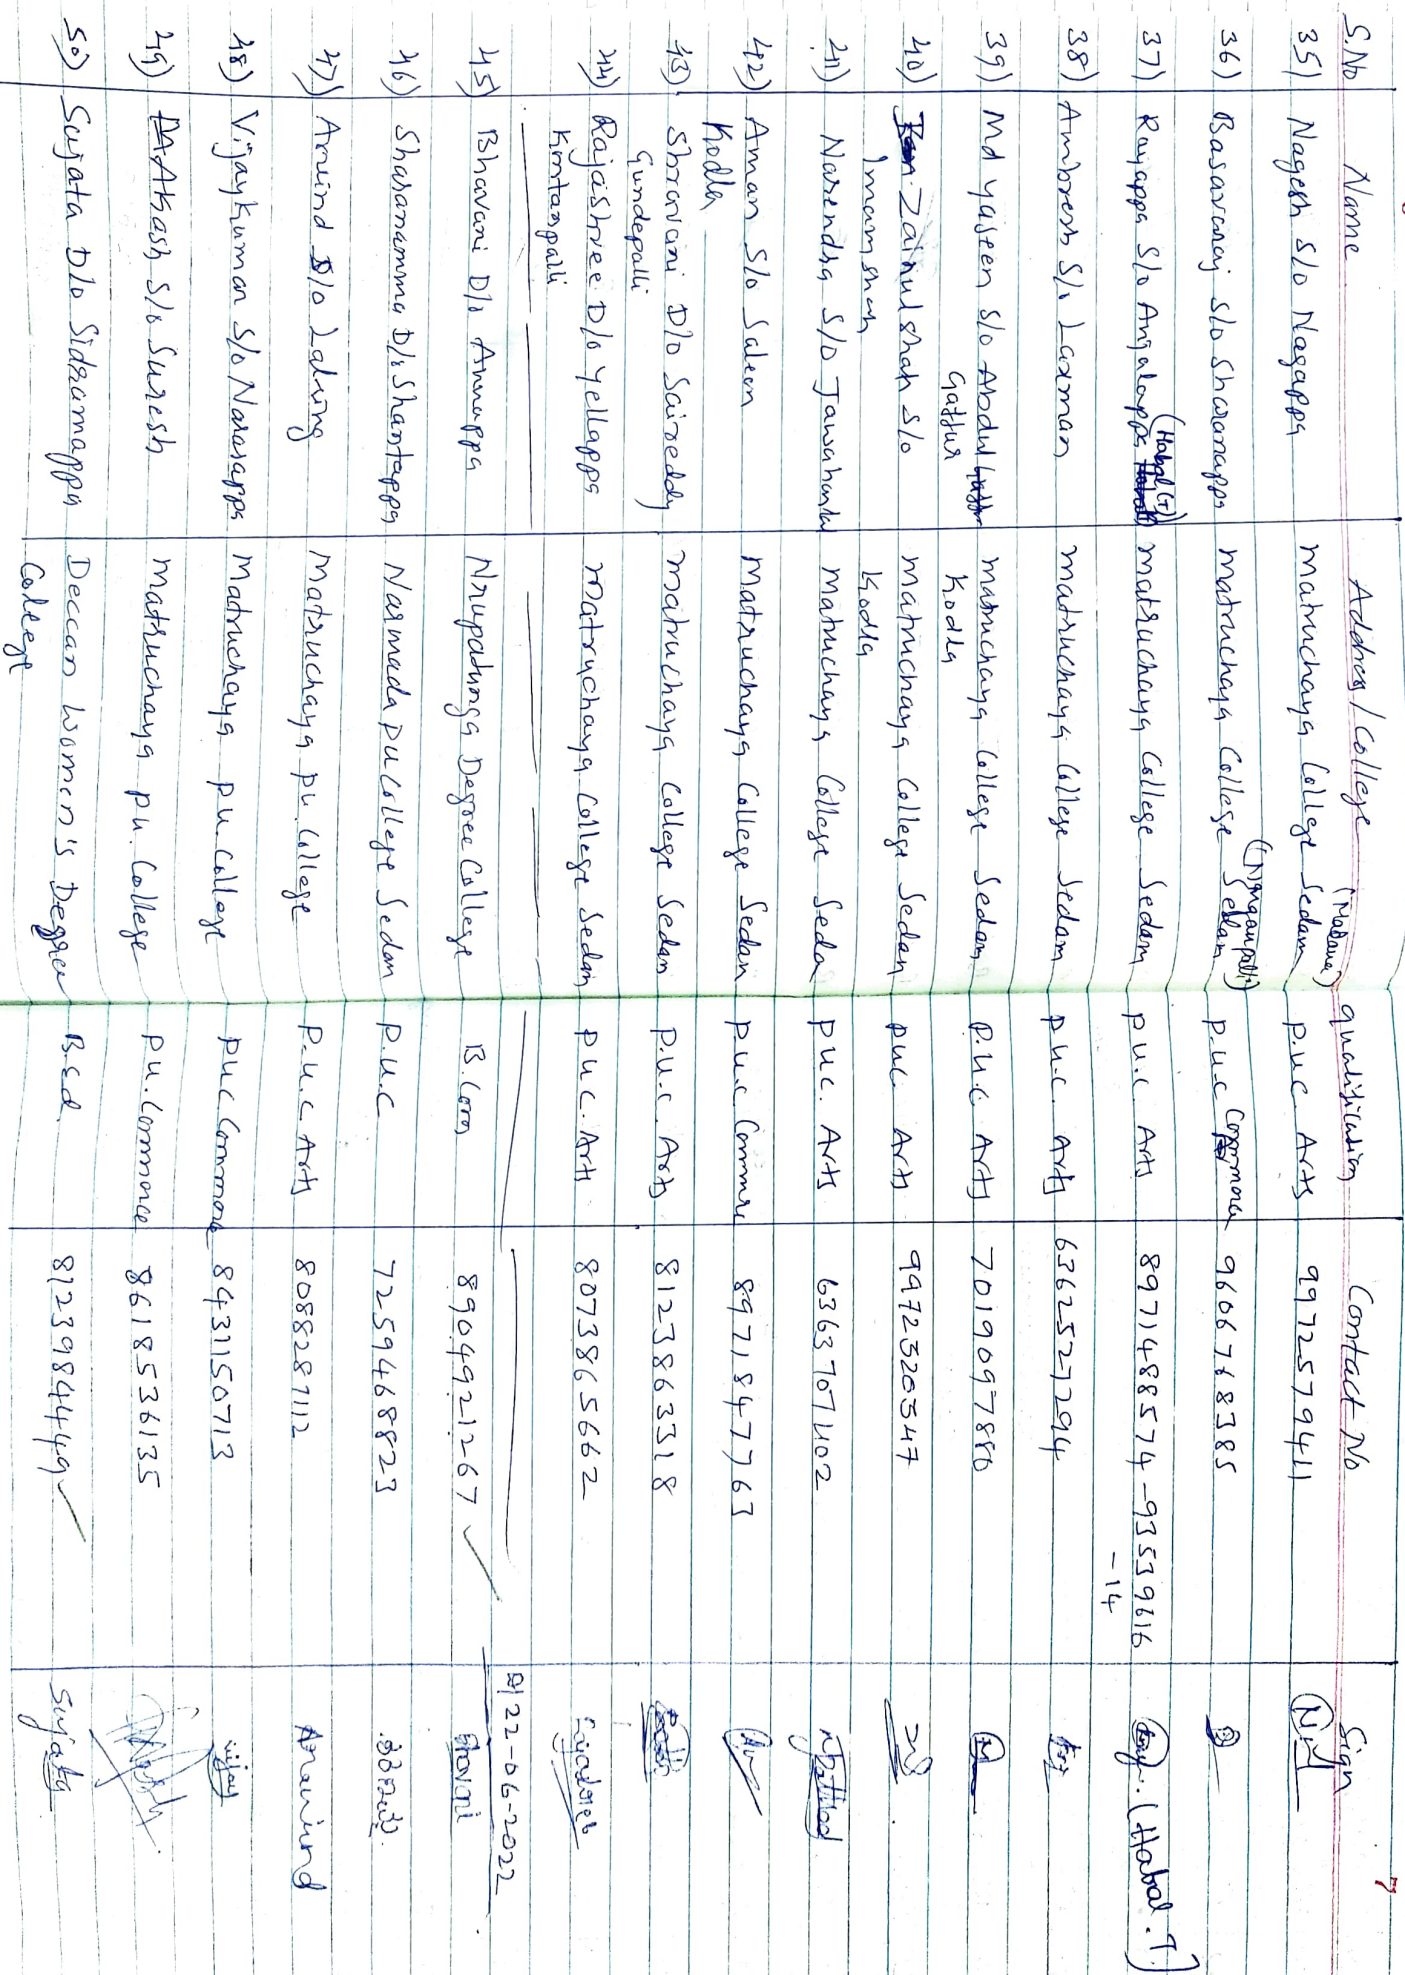 7
S.No Name Address/College qualification Contact No Sign
35) Nagesh S/o Nagappa Matruchaya College Sedam (Madana) p.u.c. Arts 9972579411
36) Basavaraj S/o Sharanappa Matruchaya College Sedam p.u.c Commerce 9606768385
37) Rayappa S/o Anjalappa (Habal (T) Matruchaya College Sedam p.u.c Arts 8971488574 - 93539616
-14 (Habal .T)
38) Ambresh S/o Laxman Matruchaya College Sedam p.u.c. Arts 6362527294
39) Md yaseen S/o Abdul Matruchaya College Sedam P.u.c. Arts 7019097880
Gaffur Kodla
40) Zainulshah S/o Matruchaya College Sedam puc. Arts 9972320347
Imamshah Kodla
41) Narendra S/o Jawaharlal Matruchaya College Sedam puc. Arts 6363707402
42) Aman S/o Saleem Matruchaya College Sedam p.u.c. Commerce 8971847763
Kodla
43) Shravani D/o Saireddy Matruchaya College Sedam P.u.c. Arts 8123863318
Gundepalli
44) Rajashree D/o Yellappa Matruchaya College Sedam puc. Arts 8073865662
Kontanpalli
22-06-2022
45) Bhavani D/o Annappa Nrupatunga Degree College B.Com 8904921267 ✓
46) Sharanamma D/o Shantappa Narmada PU College Sedam P.u.c 7259468823
47) Arvind S/o Lalsing Matruchaya pu. College P.u.c Arts 8088287112 Aravind
48) Vijaykumar S/o Narasappa Matruchaya pu. College puc Commerce 8431150713 vijay
49) Akash S/o Suresh Matruchaya pu. College pu. Commerce 8618536135
50) Sujata D/o Sidramappa Deccan Women's Degree B.Sd. 8123984449 ✓ Sujata
College